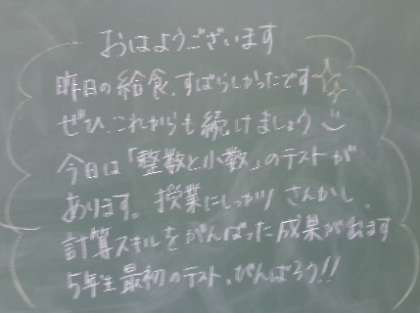 おはようございます
昨日の給食、すばらしかったです
ぜひ、これからも続けましょう
今日は「整数と小数」のテストが
あります。授業にしっかりさんかし、
計算スキルをがんばった成果が出ます
5年生最初のテスト、がんばろう!!